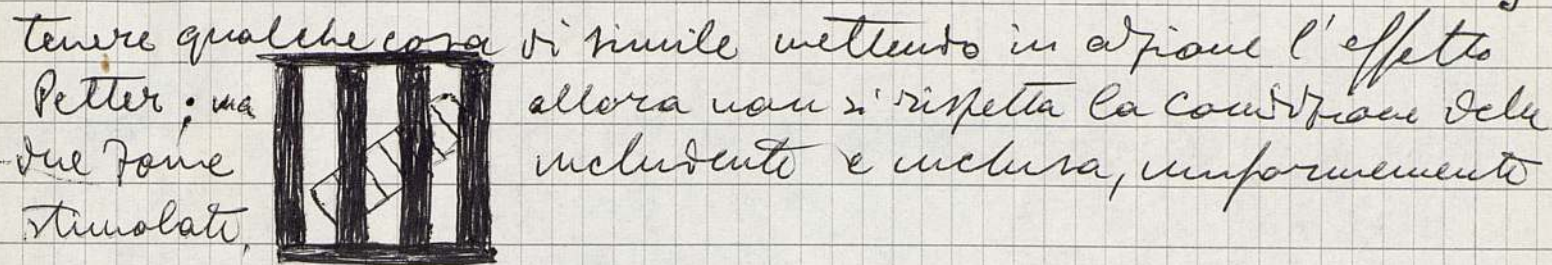 tenere qualche cosa di simile mettendo in azione l'effetto
Petter; ma allora non si rispetta la condizione delle
due zone includente e inclusa, uniformemente
stimolate.